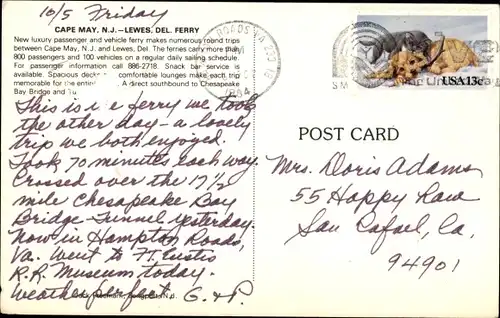 10/5 Friday
CAPE MAY, N.J.—LEWES, DEL. FERRY
New luxury passenger and vehicle ferry makes numerous round trips
between Cape May, N.J. and Lewes, Del. The ferries carry more than
800 passengers and 100 vehicles on a regular daily sailing schedule.
For passenger information call 886-2718. Snack bar service is
available. Spacious decks comfortable lounges make each trip
memorable for the entire A direct southbound to Chesapeake
Bay Bridge and Tu
This is a ferry we took
the other day – a lovely
trip we both enjoyed.
Took 70 minutes each way.
Crossed over the 17½
mile Chesapeake Bay
Bridge Tunnel yesterday.
Now in Hampton Roads,
Va. Went to Ft. Eustis
R.R. Museum today.
Weather perfect. G. & P.
ROADS VA 233
1984
USA 13c
POST CARD
Mrs. Doris Adams
55 Happy Lane
San Rafael, Ca.
94901